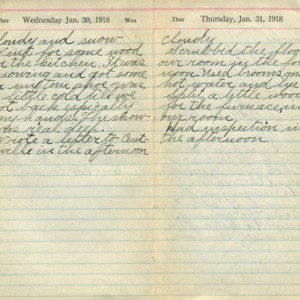 Ther Wednesday Jan. 30, 1918 Wea
Cloudy and snow
Went for some wood
for the kitchen. It was
snowing and got some
in my
felt cold let me
back especially
my hands. The snow
was real deep.
Wrote a letter to Cent-
ville in the afternoon
Ther Thursday, Jan. 31, 1918
Cloudy
Scrubbed the floor
our room in the fore
noon. Used brooms,
hot water and lye
split a little wood
for the furnace in
our room.
Had inspection in
the afternoon